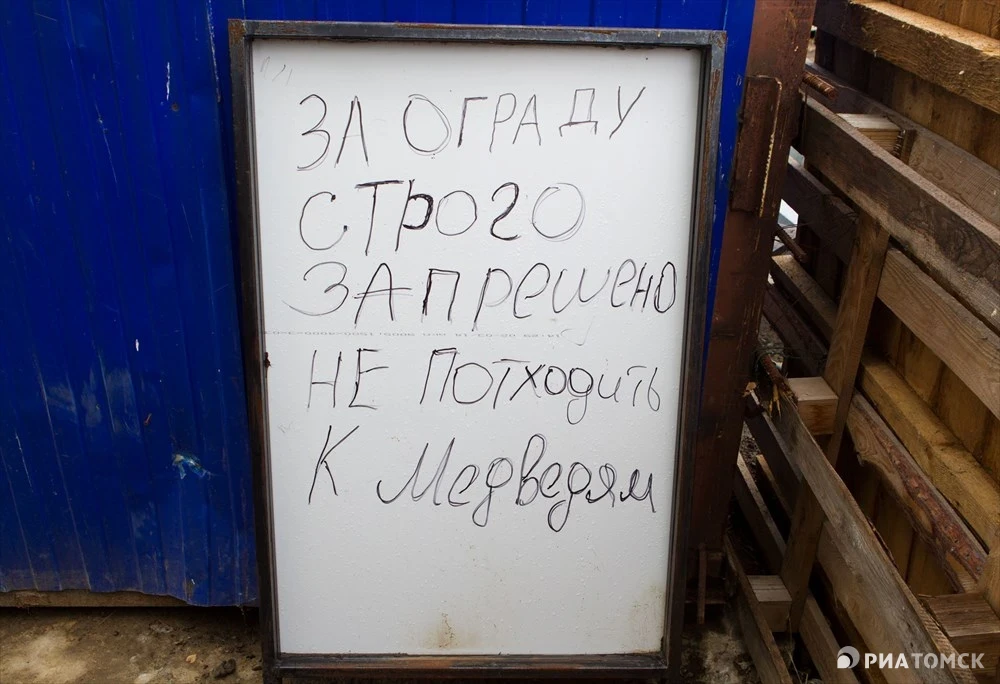 ЗА ОГРАДУ
СТРОГО
ЗАПРЕШЕНО
НЕ ПОТХОДИТЬ
К Медведям
РИАТОМСК